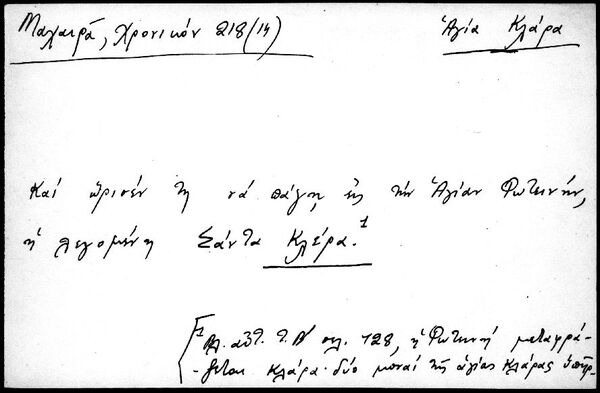 Μαχαιρᾶ, Χρονικόν 218(14)
Ἁγία Κλάρα
Καί ὥρισέν τη νά πάγῃ εἰς τήν Ἁγίαν Φωτεινήν,
ἡ λεγομένη Σάντα Κλέρα.¹
[1 Βλ. αὐτ. τ. Β' σελ. 128, ἡ Φωτεινή μεταφρά-
-ζεται Κλάρα· δύο μοναί τῆς ἁγίας Κλάρας ὑπῆρ-